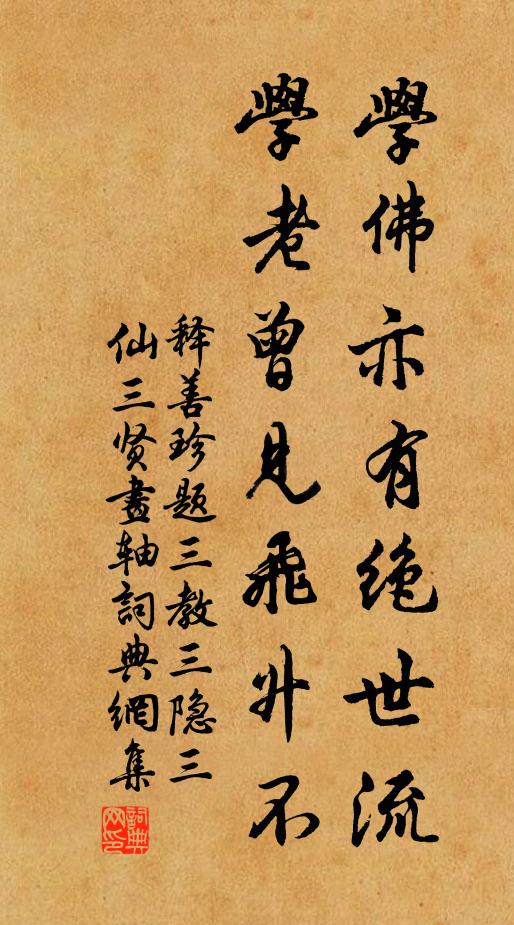 學佛亦有绝世流
學老曾見飛升不
释善珍题三教三隐三
仙三贤畫轴詞典網集
詞典
网印